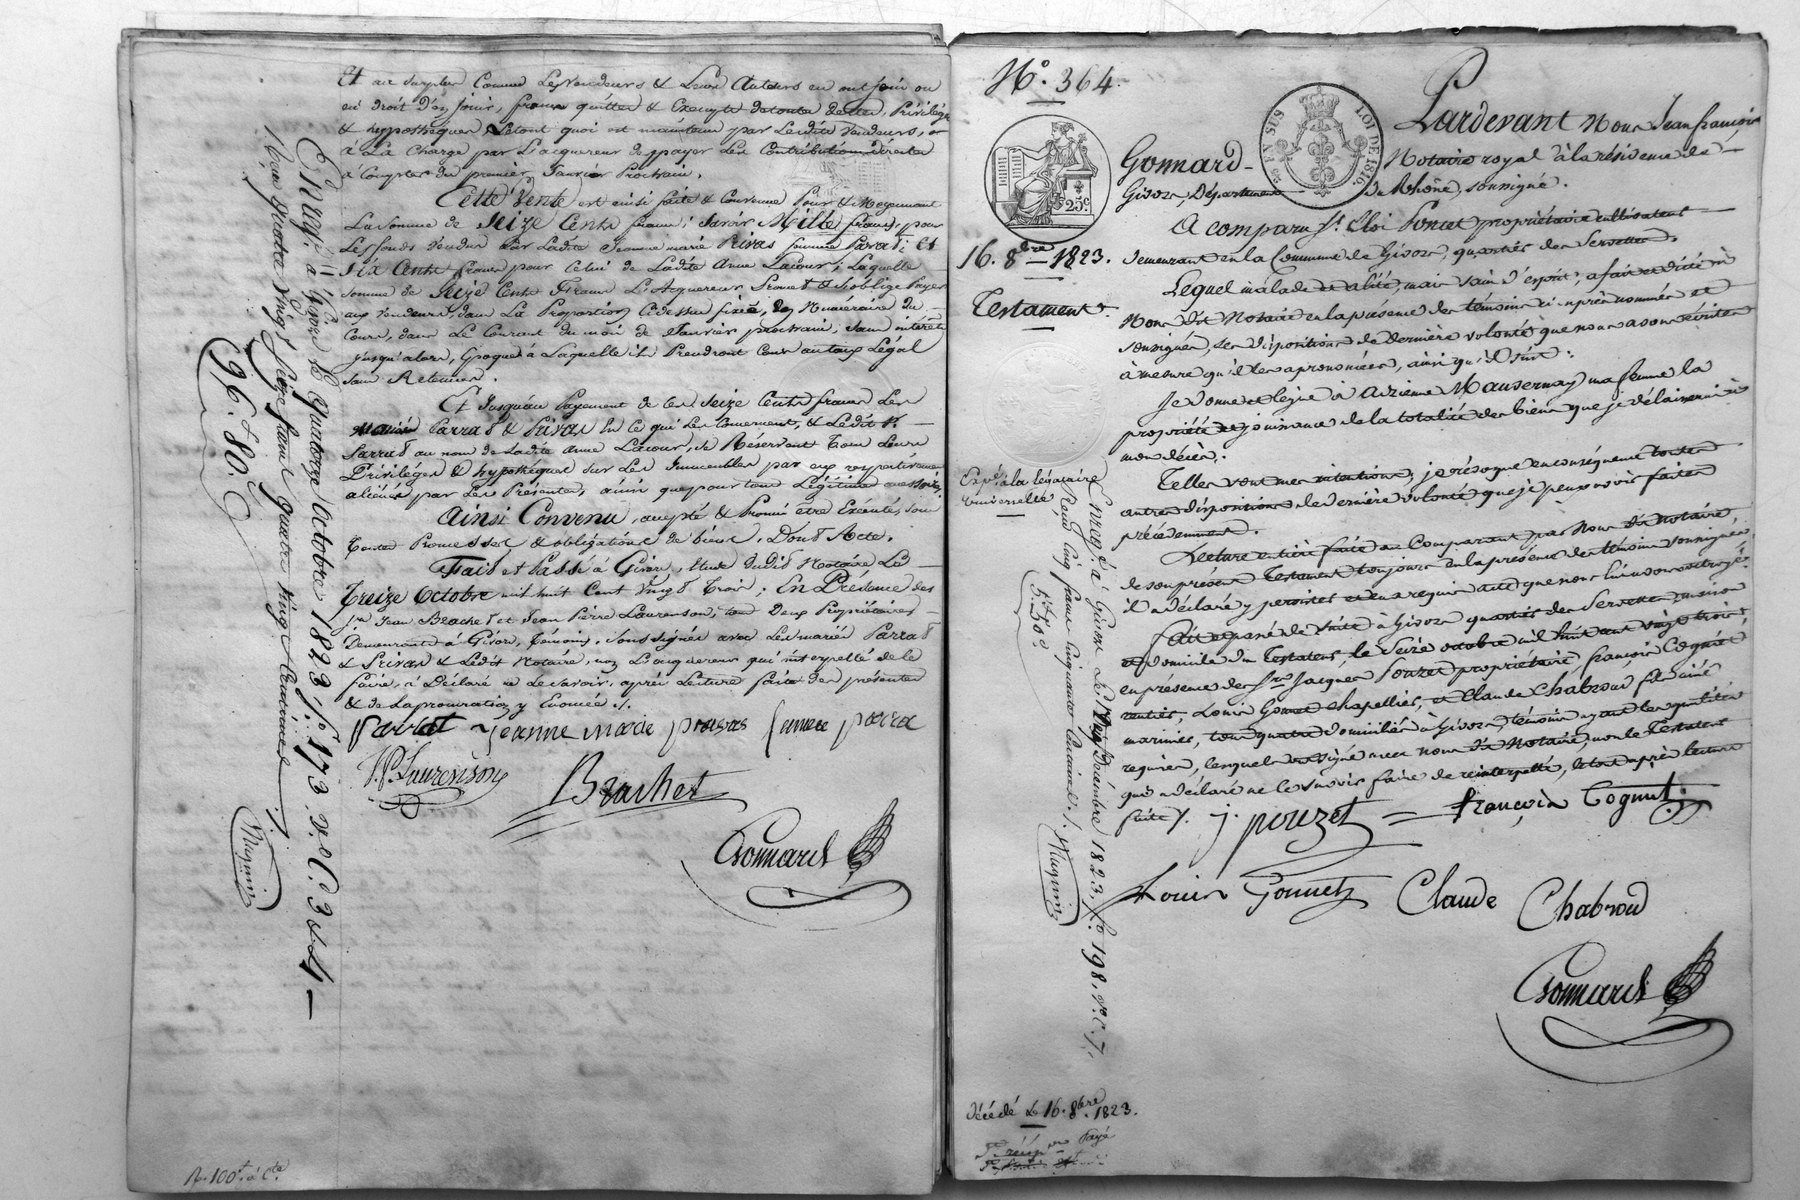 Et au surplus Comme Les Vendeurs & Leurs Auteurs en ont Joui ou
eu droit D'en Jouir, francs quittes & Exempts de toutes dettes, Priviléges
& hypothéques, Letout quoi est maintenu par Lesdits Vendeurs, &
à La Charge par L'acquereur de payer Les Contributions directes
à Compter du premier Janvier Prochain.
Cette Vente est ainsi faite & Convenue Pour & Moyennant
La Somme de Seize Cents francs; Savoir Mille francs, pour
Les fonds Vendus Par Ladite Jeanne marie Privas femme Parrat; Et
Six Cents francs pour Celui de Ladite Anne Lacour; Laquelle
Somme de Seize Cents Francs L'Acquereur Promet & S'oblige Payer
aux Vendeurs, dans La Proportion Cidessus fixée, en Numéraire du
Cours, dans Le Courant du mois de Janvier prochain, Sans intérêts
Jusqu'alors, Epoque à Laquelle ils Prendront Cours au taux Légal
Sans Retenue.
Et Jusqu'au Payement de Ces Seize Cents francs Les
mariés Parrat & Privas En Ce qui Les Concernent, & Ledit Sr.
Parrat au nom de Ladite Anne Lacour, Se Réservent Tous Leurs
Priviléges & hypothéques Sur Les Immeubles par eux respectivement
aliénés par Les Présentes, ainsi que pour tous Légitimes accessoires
Ainsi Convenu, accepté & Promis être Exécuté, Sous
Toutes Promesses & obligations de biens. Dont Acte.
Fait et Passé à Givors, Etude dudit Notaire Le
Treize Octobre mil huit Cent Vingt Trois; En Présence des
Srs Jean Brachet et Jean Pierre Laurenson, tous Deux Propriétaires
Demeurants à Givors, Témoins, Soussignés avec Les mariés Parrat
& Privas & Ledit Notaire, non L'acquereur qui interpellé de le
faire, à Déclaré ne Le Savoir, après Lecture faite des présentes
& de La procuration y Enoncée ./.
Parrat Jeanne Marie privas femme parra
J. P. Laurenson
Brachet
Gonnard
Enreg.é à Givors Le Quatorze Octobre 1823, f.o 173. v.o C. 3 & 4
Reçu Quatre Vingt Seize francs Quatre Vingt Centimes
96.f 80.c
Muguin
R. 100.f à C.te
N.o 364.
25.c
16. 8bre 1823.
Testament
Exp.é à la légataire
Universelle
Enregé à Givors Le Décembre 1823, f.o 198, v.o C. 7,
Reçu Cinq francs Cinquante Centimes ./.
5.f 50.c
Muguin
EN SUS
LOI DE 1816.
Pardevant Nous Jean françois
Gonnard Notaire royal à la résidence de
Givors, Département du Rhône, soussigné.
A comparu Sr. Eloi Poncet propriétaire cultivateur
demeurant en la Commune de Givors, quartier des Servettes.
Lequel malade mais sain d'esprit, a fait et dicté à
Nous dit Notaire en la présence des témoins ci-après nommés et
soussignés, ses dispositions de dernière volonté que nous avons écrites
à mesure qu'il les a prononcées, ainsi qu'il suit:
Je donne et légue à Adzienne Mausernay ma femme la
propriété et jouissance de la totalité des biens que je délaisserai à
mon décès.
Telles sont mes intentions; je révoque en conséquence toutes
autres dispositions de dernière volonté que je peux avoir faites
précédemment.
Lecture entière faite au Comparant par Nous dit Notaire
de son présent Testament toujours en la présence des témoins soussignés,
il a déclaré y persister et en a requis acte que nous lui avons octroyé.
Fait et passé de suite à Givors quartier des Servettes, maison
et domicile du Testateur, le Seize octobre mil huit cent vingt trois,
en présence des Srs Jacques Pouzet propriétaire, françois Cognet
rentier, Louis Gonnet chapellier, et Claude Chabroud fils ainé
marinier, tous quatre domiciliés à Givors, témoins ayant les qualités
requises, lesquels ont signé avec nous dit Notaire, non le Testateur
qui a déclaré ne le savoir faire de ce interpellé, le tout après lecture
faite ./.
j. pouzet françois Cognet
Louis Gonnet Claude Chabroud
Gonnard
Décédé Le 16. 8bre 1823.